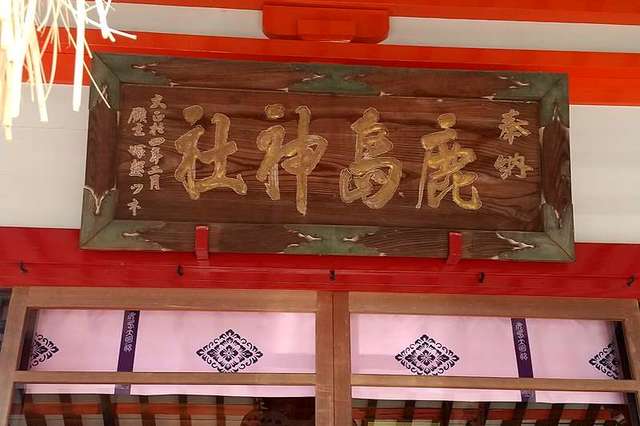 奉納
鹿島神社
大正拾四年二月
願主
ツネ